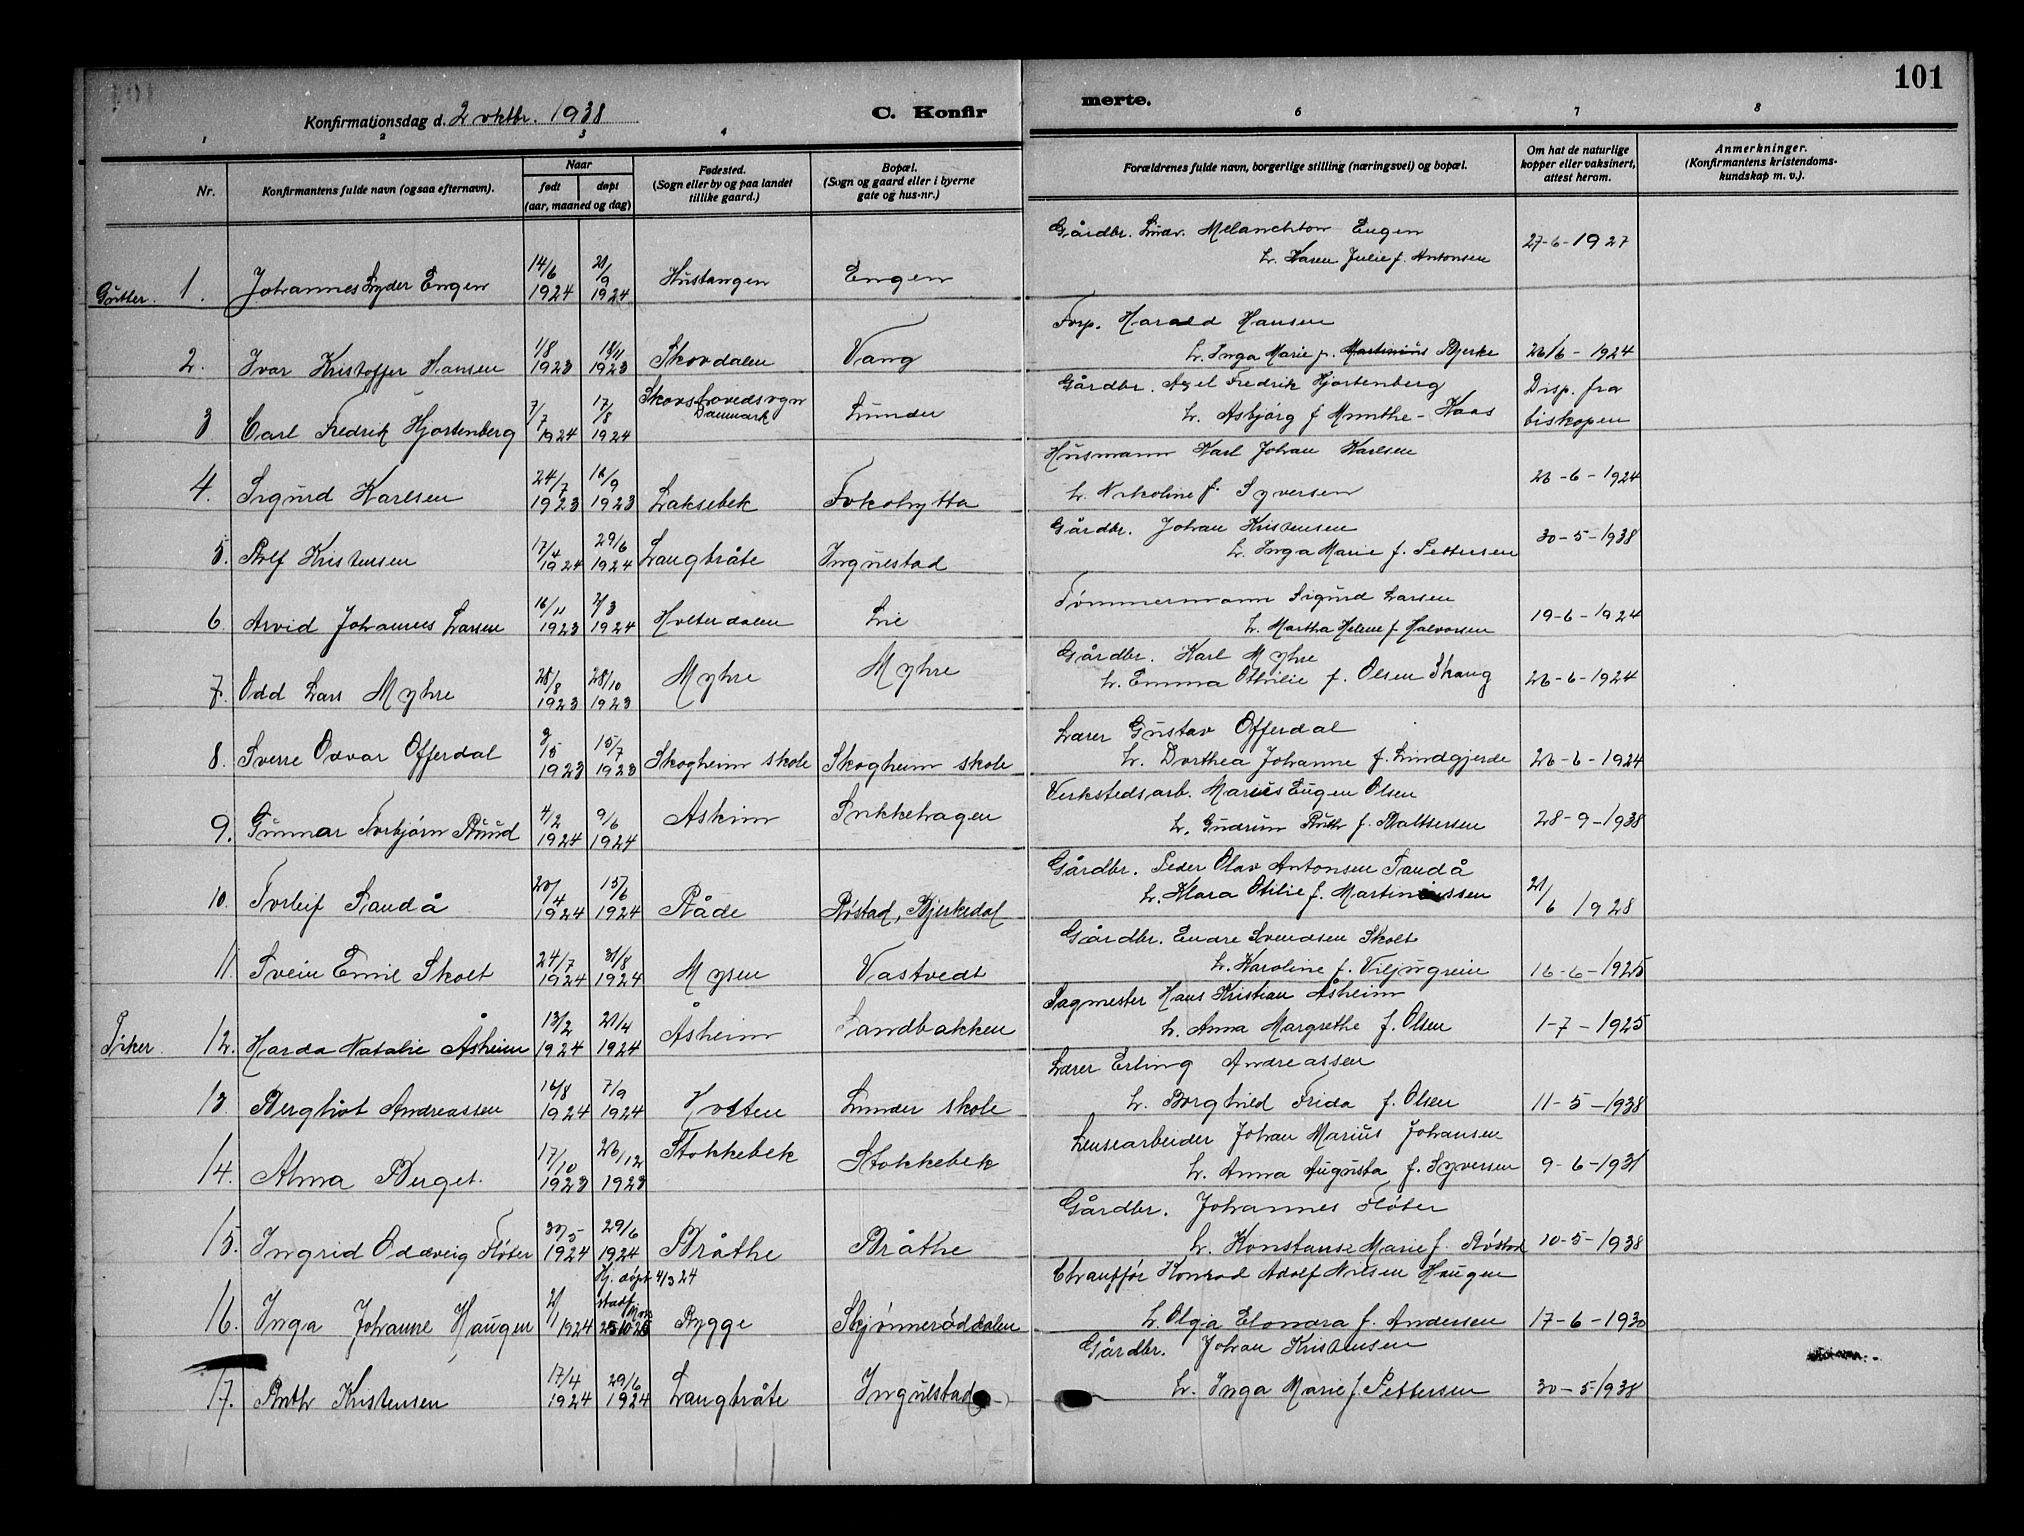 101
Konfirmationsdag d. 2 oktbr. 1938
C. Konfir
merte.
1 2 3 4 6 7 8
Nr.
Konfirmantens fulde navn (ogsaa efternavn).
Naar
født døpt
(aar, maaned og dag)
Fødested.
(Sogn eller by og paa landet
tillike gaard.)
Bopæl.
(Sogn og gaard eller i byerne
gate og hus-nr.)
Forældrenes fulde navn, borgerlige stilling (næringsvei) og bopæl.
Om hat de naturlige
kopper eller vaksinert,
attest herom.
Anmerkninger.
(Konfirmantens kristendoms-
kundskap m. v.).
Gutter. 1. Johannes Lyder Engen 14/6 1924 21/9 1924 Hustangen Engen
Gårdbr. Ludv. Melanchton Engen
h. Karen Julie f. Antonsen 27-6-1927
2. Ivar Kristoffer Hansen 1/8 1923 18/11 1923 Skovdalen Vang
Forp. Harald Hansen
h. Inga Marie f. Martinius Bjerke 26/6 - 1924
3 Carl Fredrik Hjortenberg 7/7 1924 17/8 1924 Skovshovedsogn Danmark Lunder
Gårdbr. Axel Fredrik Hjortenberg
h. Asbjørg f Munthe-Kaas Disp. fra biskopen
4. Sigurd Karlsen 24/7 1923 16/9 1923 Laksebek Fokohytta
Husmann Karl Johan Karlsen
h. Nikoline f. Syversen 26-6-1924
5. Rolf Kristensen 17/4 1924 29/6 1924 Langbråte Ingulstad
Gårdbr. Johan Kristensen
h. Inga Marie f. Pettersen 30-5-1938
6. Arvid Johannes Larsen 16/11 1923 2/3 1924 Holterdalen Lie
Tømmermann Sigurd Larsen
h. Martha Helene f Halvorsen 19-6-1924
7. Odd Lars Myhre 28/8 1923 28/10 1923 Myhre Myhre
Gårdbr. Karl Myhre
h. Emma Othilie f. Olsen Skaug 26-6-1924
8. Sverre Odvar Offerdal 2/5 1923 15/7 1923 Skogheim skole Skogheim skole
Lærer Gustav Offerdal
h. Dorthea Johanne f. Lindgjerde 26-6-1924
9. Gunnar Torbjørn Ruud 4/2 1924 9/6 1924 Askim Snikkehagen
Verkstedsarb. Marius Eugen Olsen
h. Gudrun Ruth f. Baltsersen 28-9-1938
10. Torleif Sandå 20/4 1924 15/6 1924 Råde Røstad, Bjerkedal
Gårdbr. Peder Olav Antonsen Sandå
h. Klara Otilie f. Martiniussen 21/6 1928
11. Svein Emil Skolt 24/7 1924 31/8 1924 Mysen Vastvedt
Gårdbr. Endre Svendsen Skolt
h. Karoline f. Viljugrein 16-6-1925
Piker. 12. Harda Natalie Åsheim 13/2 1924 21/4 1924 Åsheim Sandbakken
Sagmester Hans Kristian Åsheim
h. Anna Margrethe f. Olsen 1-7-1925
13. Bergliot Andreassen 16/8 1924 7/9 1924 Holten Lunder skole
Lærer Erling Andreassen
h. Borghild Frida f. Olsen 11-5-1938
14. Alma Berget. 17/10 1923 26/12 1923 Stokkebek Stokkebek
Lensearbeider Johan Marius Johansen
h. Anna Augusta f. Syversen 9-6-1931
15. Ingrid Oddveig Fløter 30/5- 1924 29/6 1924 Bråthe Bråthe
Gårdbr. Johannes Fløter
h. Konstanse Marie f. Røstad 10-5-1938
16. Inga Johanne Haugen 21/1 1924 Hj. døpt 4/3 24 stadf. Moss 25 10 25 Rygge Skjønnerøddalen
Chauffør Konrad Adolf Nilsen Haugen
h. Olga Elonora f. Andersen 17-6-1930
17. Ruth Kristensen 17/4 1924 29/6 1924 Langbråte Ingulstad
Gårdbr. Johan Kristensen
h. Inga Marie f. Pettersen 30-5-1938